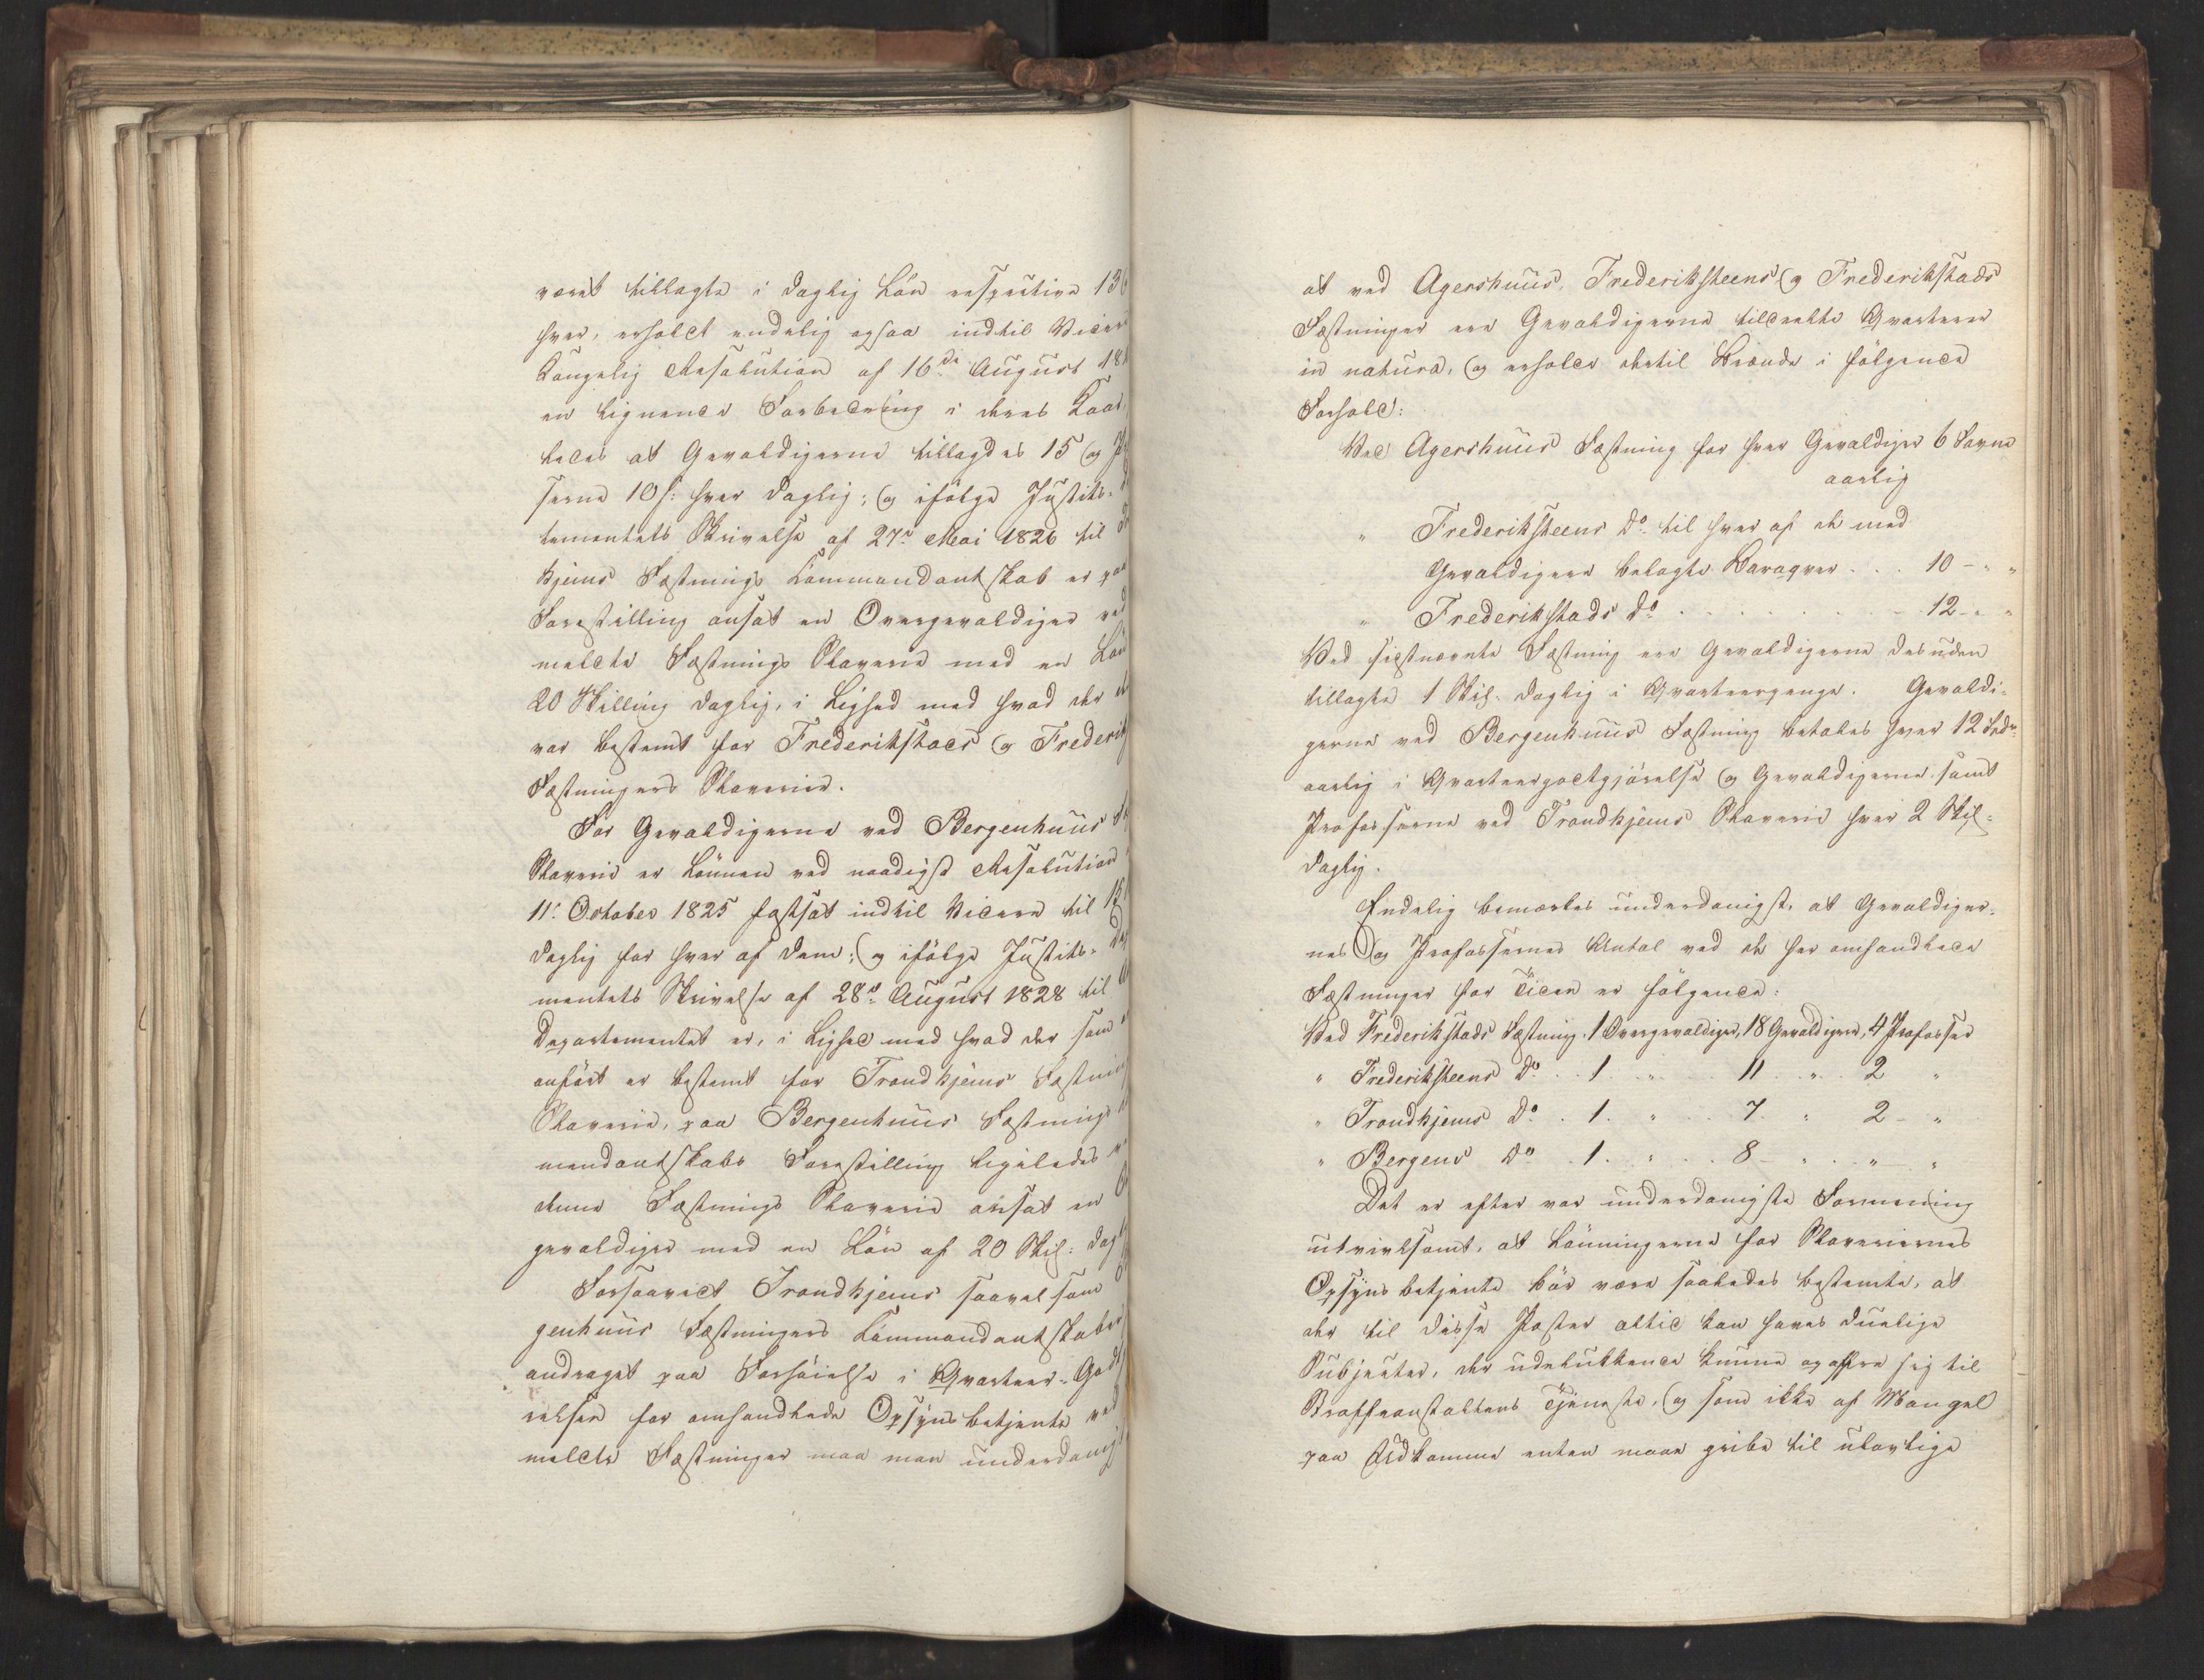 været tillagte i daglig Løn respective 13
hver, erholdt endelig ogsaa indtil Videre
Kongelig Resolution af 16de August 18
en lignende Forbedring i deres Kaar,
ledes at Gevaldigerne tillagdes 15 og
serne 10 s: hver daglig; og ifølge Justits-
tementets Skrivelse af 27d Mai 1826 til
hjems Fæstnings Commandantskab er paa
Forestilling ansat en Overgevaldiger ved
meldte Fæstnings Slaverie med en Løn
20 Skilling daglig, i Lighed med hvad der
var bestemt for Frederikstads og Frederik
Fæstningers Slaverier.
For Gevaldigerne ved Bergenhuus
Slaverie er Lønnen ved naadigst Resolution
11t October 1825 fastsat indtil Videre til 15
daglig for hver af dem; og ifølge Justits-
mentets Skrivelse af 28d August 1828 til
Departementet er, i Lighed med hvad der som
anført er bestemt for Trondhjems Fæstning
Slaverie, paa Bergenhuus Fæstnings
mandantskabs Forestilling ligeledes
denne Fæstnings Slaverie ansat en
gevaldiger med en Løn af 20 Skil: dagl
Forsaavidt Trondhjems saavel som
genhuus Fæstningers Commandantskaber
andraget paa Forhøielse i Qvarteer-Godt
relsen for omhandlede Opsynsbetjente ved
meldte Fæstninger maa man underdanigst
at ved Agershuus, Frederiksteens og Frederikstads
Fæstninger ere Gevaldigerne tildeelte Qvarterer
in natura, og erholde dertil Brænde i følgende
Forhold:
Ved Agershuus Fæstning for hver Gevaldiger 6 Favne
aarlig
" Frederiksteens Do til hver af de med
Gevaldigere belagte Baraqver . . . 10 - " "
" Frederikstads Do . . . . . . 12 - " "
Ved sidstnævnte Fæstning ere Gevaldigerne desuden
tillagte 1 Skil. daglig i Qvarteerpenge. Gevaldi-
gerne ved Bergenhuus Fæstning betales hver 12 Spd.
aarlig i Qvarteergodtgjørelse og Gevaldigerne samt
Profosserne ved Trondhjems Slaverie hver 2 Skil-
daglig.
Endelig bemærkes underdanigst, at Gevaldiger-
nes og Profossernes Antal ved de her omhandlede
Fæstninger for Tiden er følgende:
Ved Frederikstads Fæstning . 1 Overgevaldiger, 18 Gevaldigere, 4 Profosser
" Frederiksteens Do . . 1 . " . 11 . " . 2 "
" Trondhjems Do . 1 . " 7 . " 2 - "
" Bergens Do . 1 . " . . 8 - " . . " - "
Det er efter vor underdanigste Formening
utvivlsomt, at Lønningerne for Slaveriernes
Opsynsbetjente bør være saaledes bestemte, at
der til disse Poster altid kan haves duelige
Subjecter, der udelukkende kunne opoffre sig til
Straffeanstaltens Tjeneste, og som ikke af Mangel
paa Udkomme enten maae gribe til ulovlige